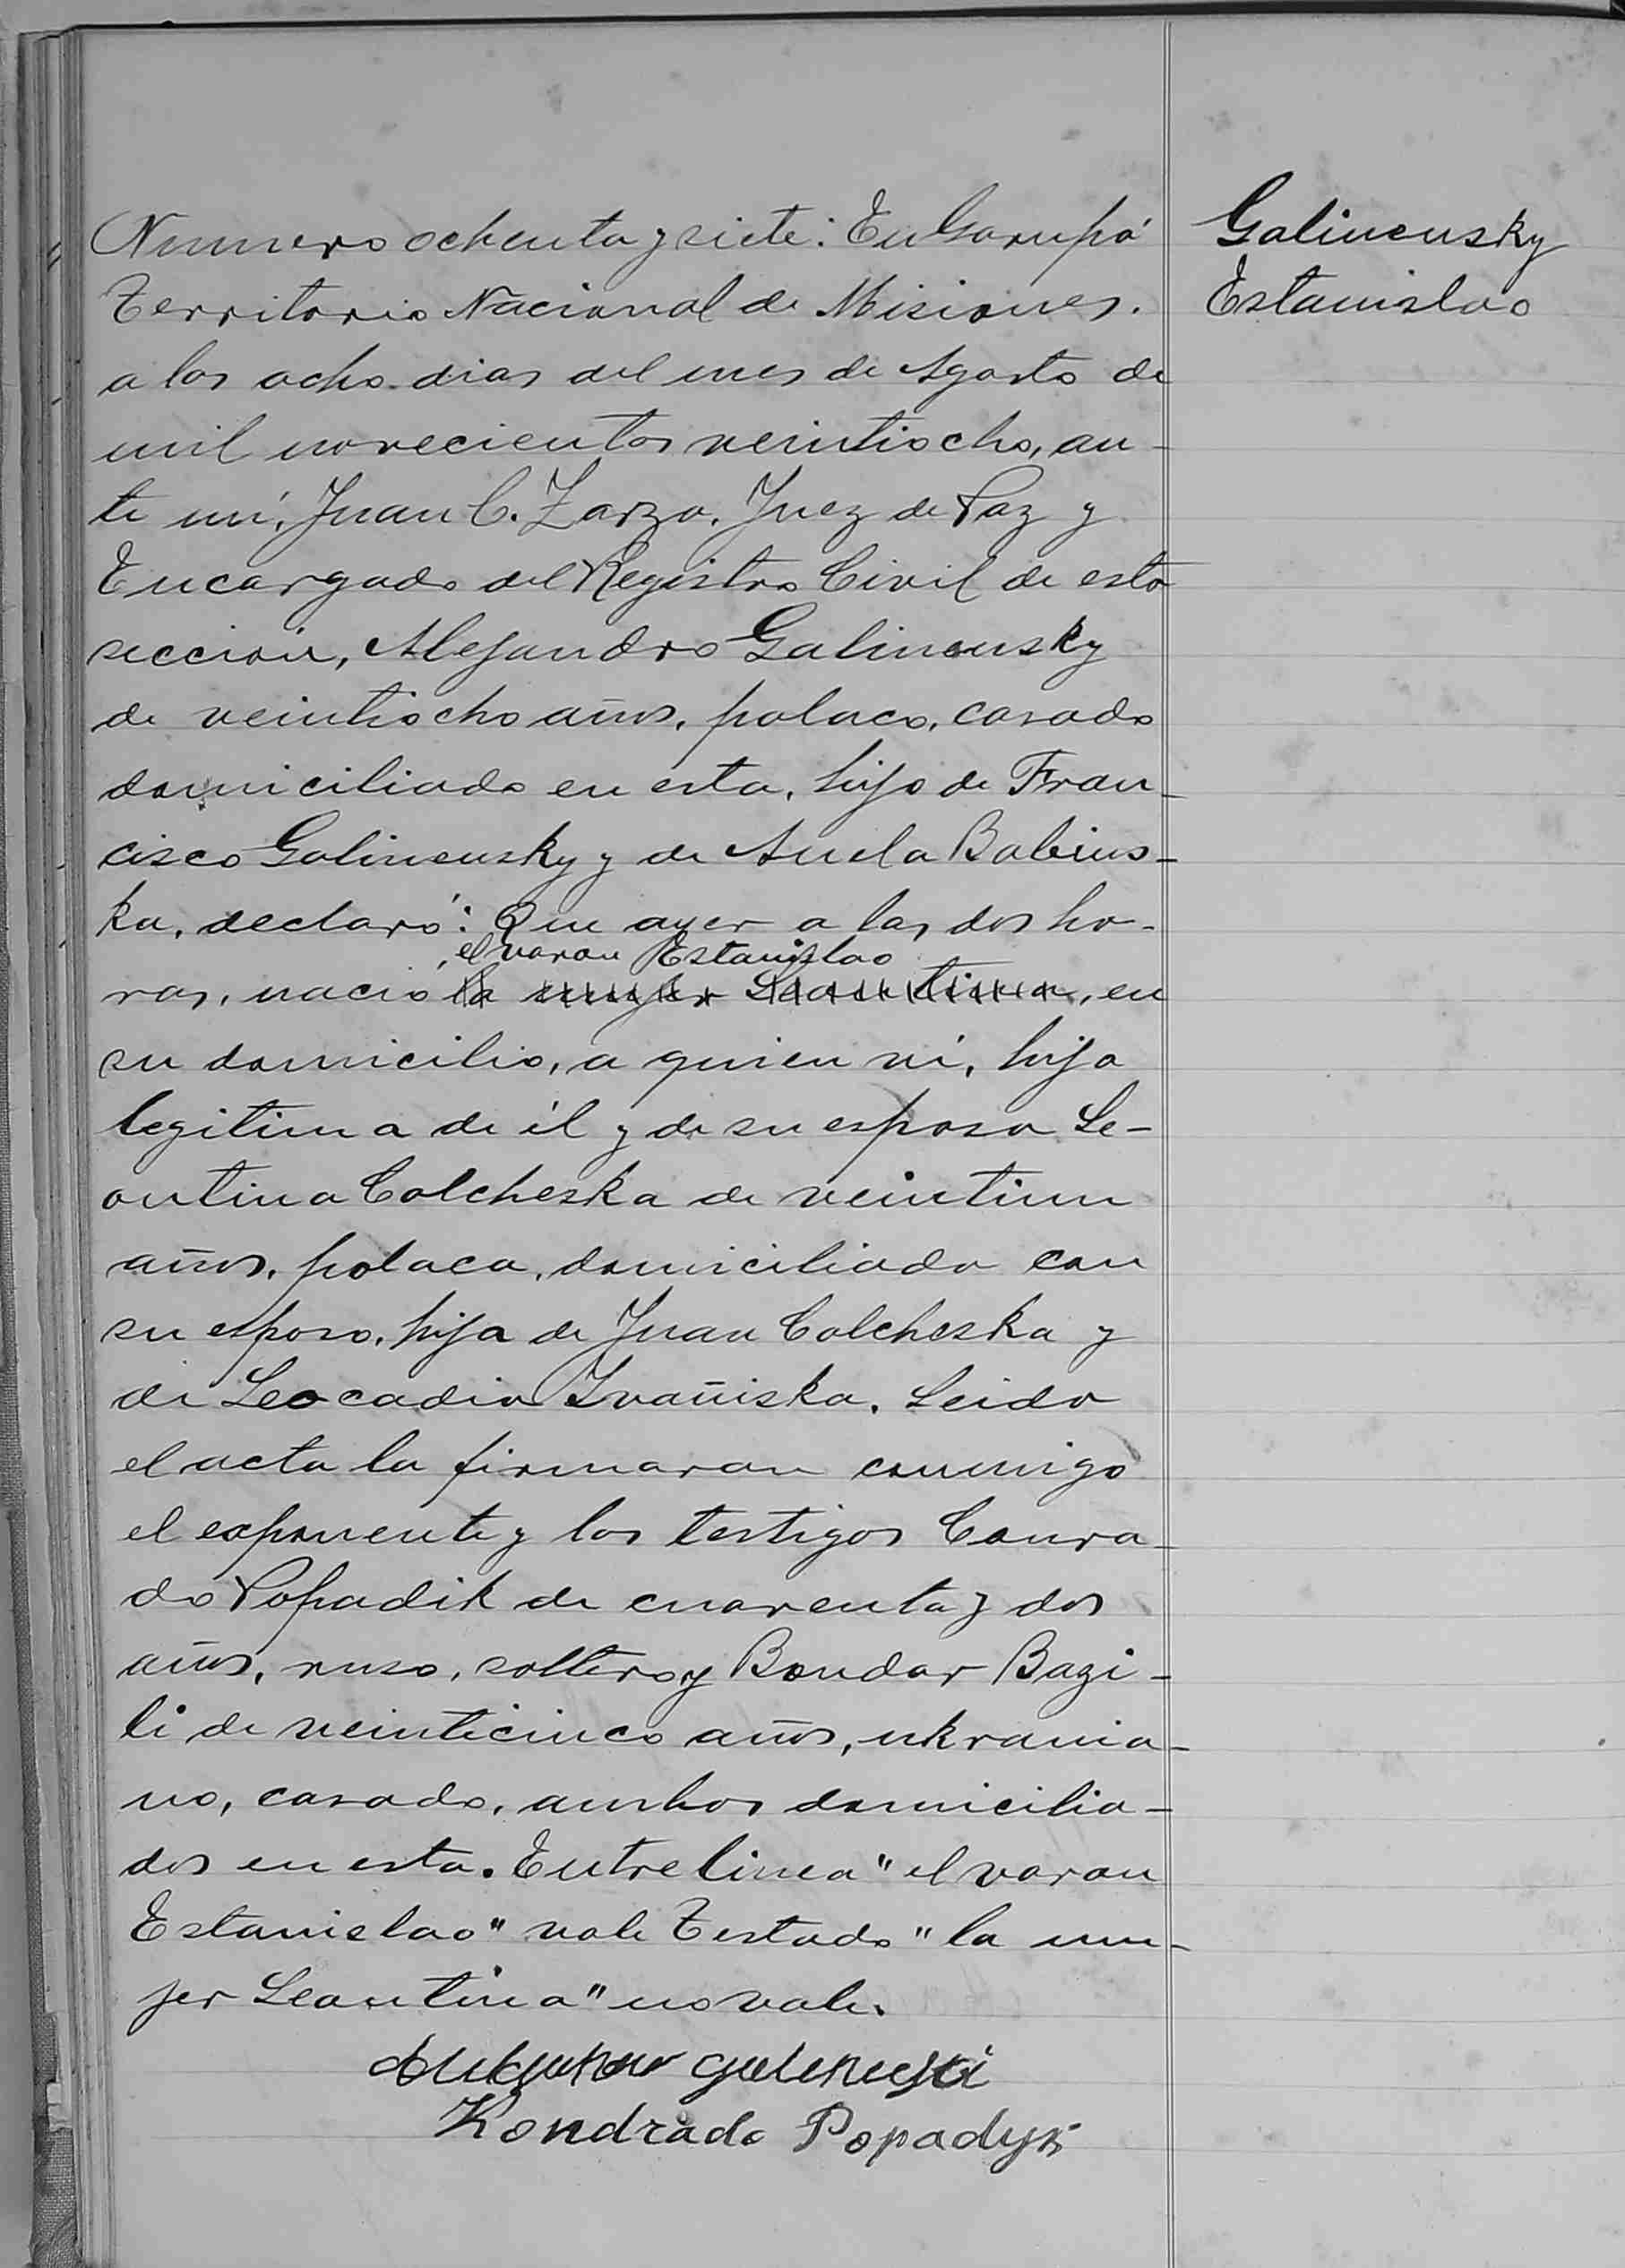 Numero ochenta y siete: En Garupá
Territorio Nacional de Misiones.
a los ocho dias del mes de Agosto de
mil novecientos veintiocho, an-
te mí, Juan C. Zarza, Juez de Paz y
Encargado del Registro Civil de esta
seccion, Alejandro Galinensky
de veintiocho años, polaco, casado
domiciliado en esta, hijo de Fran-
cisco Galinensky y de Anela Babins-
ka, declaró: Que ayer a las dos ho-
el varon Estanislao
ras, nació la mujer Leontina, en
su domicilio, a quien ví, hija
legitima de él y de su esposa Le-
ontina Colcheska de veintiun
años, polaca, domiciliada con
su esposo, hija de Juan Colcheska y
de Leocadia Ivañiska. Leida
el acta la firmaron conmigo
el exponente y los testigos Conra-
do Popadik de cuarenta y dos
años, ruso, soltero y Bondar Bazi-
li de veinticinco años, ukrania-
no, casado, ambos domicilia-
dos en esta. Entre linea "el varon
Estanislao" vale Testado "la mu-
jer Leontina" no vale.
Kondrado Popadyk
Galinensky
Estanislao